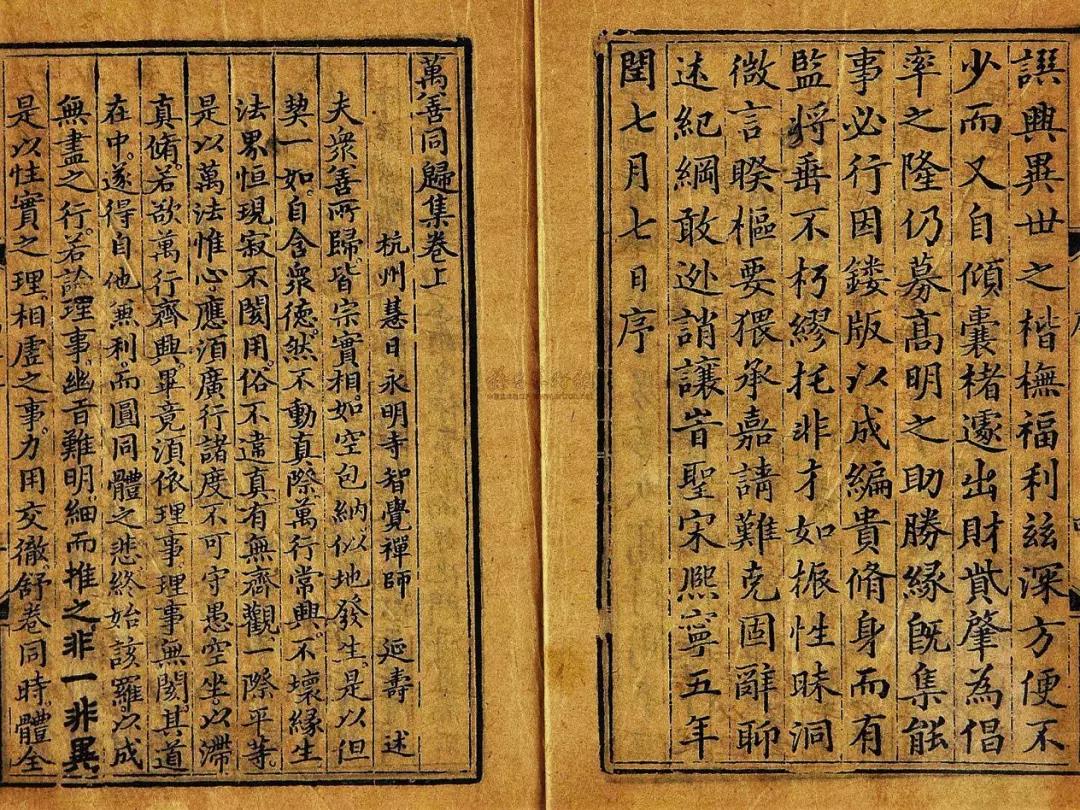 譔興異世之楷橅福利茲深方便不
少而又自傾囊楮遽出財貲肇為倡
率之隆仍募高明之助勝緣既集能
事必行因鏤版以成編貴脩身而有
監將垂不朽繆托非才如振性昧洞
微言睽樞要猥承嘉請難克固辭聊
述紀綱敢迯誚讓峕聖宋熈寧五年
閏七月七日序
萬善同歸集卷上
杭州慧日永明寺智覺禪師 延壽 述
夫衆善所歸。皆宗實相。如空包納似地發生。是以但
契一如。自含衆德。然不動真際萬行常興。不壞緣生
法界恒現寂不閡用。俗不違真。有無齊觀一際平等。
是以萬法惟心應湏廣行諸度不可守愚空坐。以滯
真脩。若欲萬行齊興。畢竟湏依理事理事無閡。其道
在中。遂得自他兼利。而圓同體之悲。終始該羅。以成
無盡之行。若論理事。幽旨難明。細而推之非一非異
是以性實之理。相虛之事。力用交徹。舒卷同時。體全